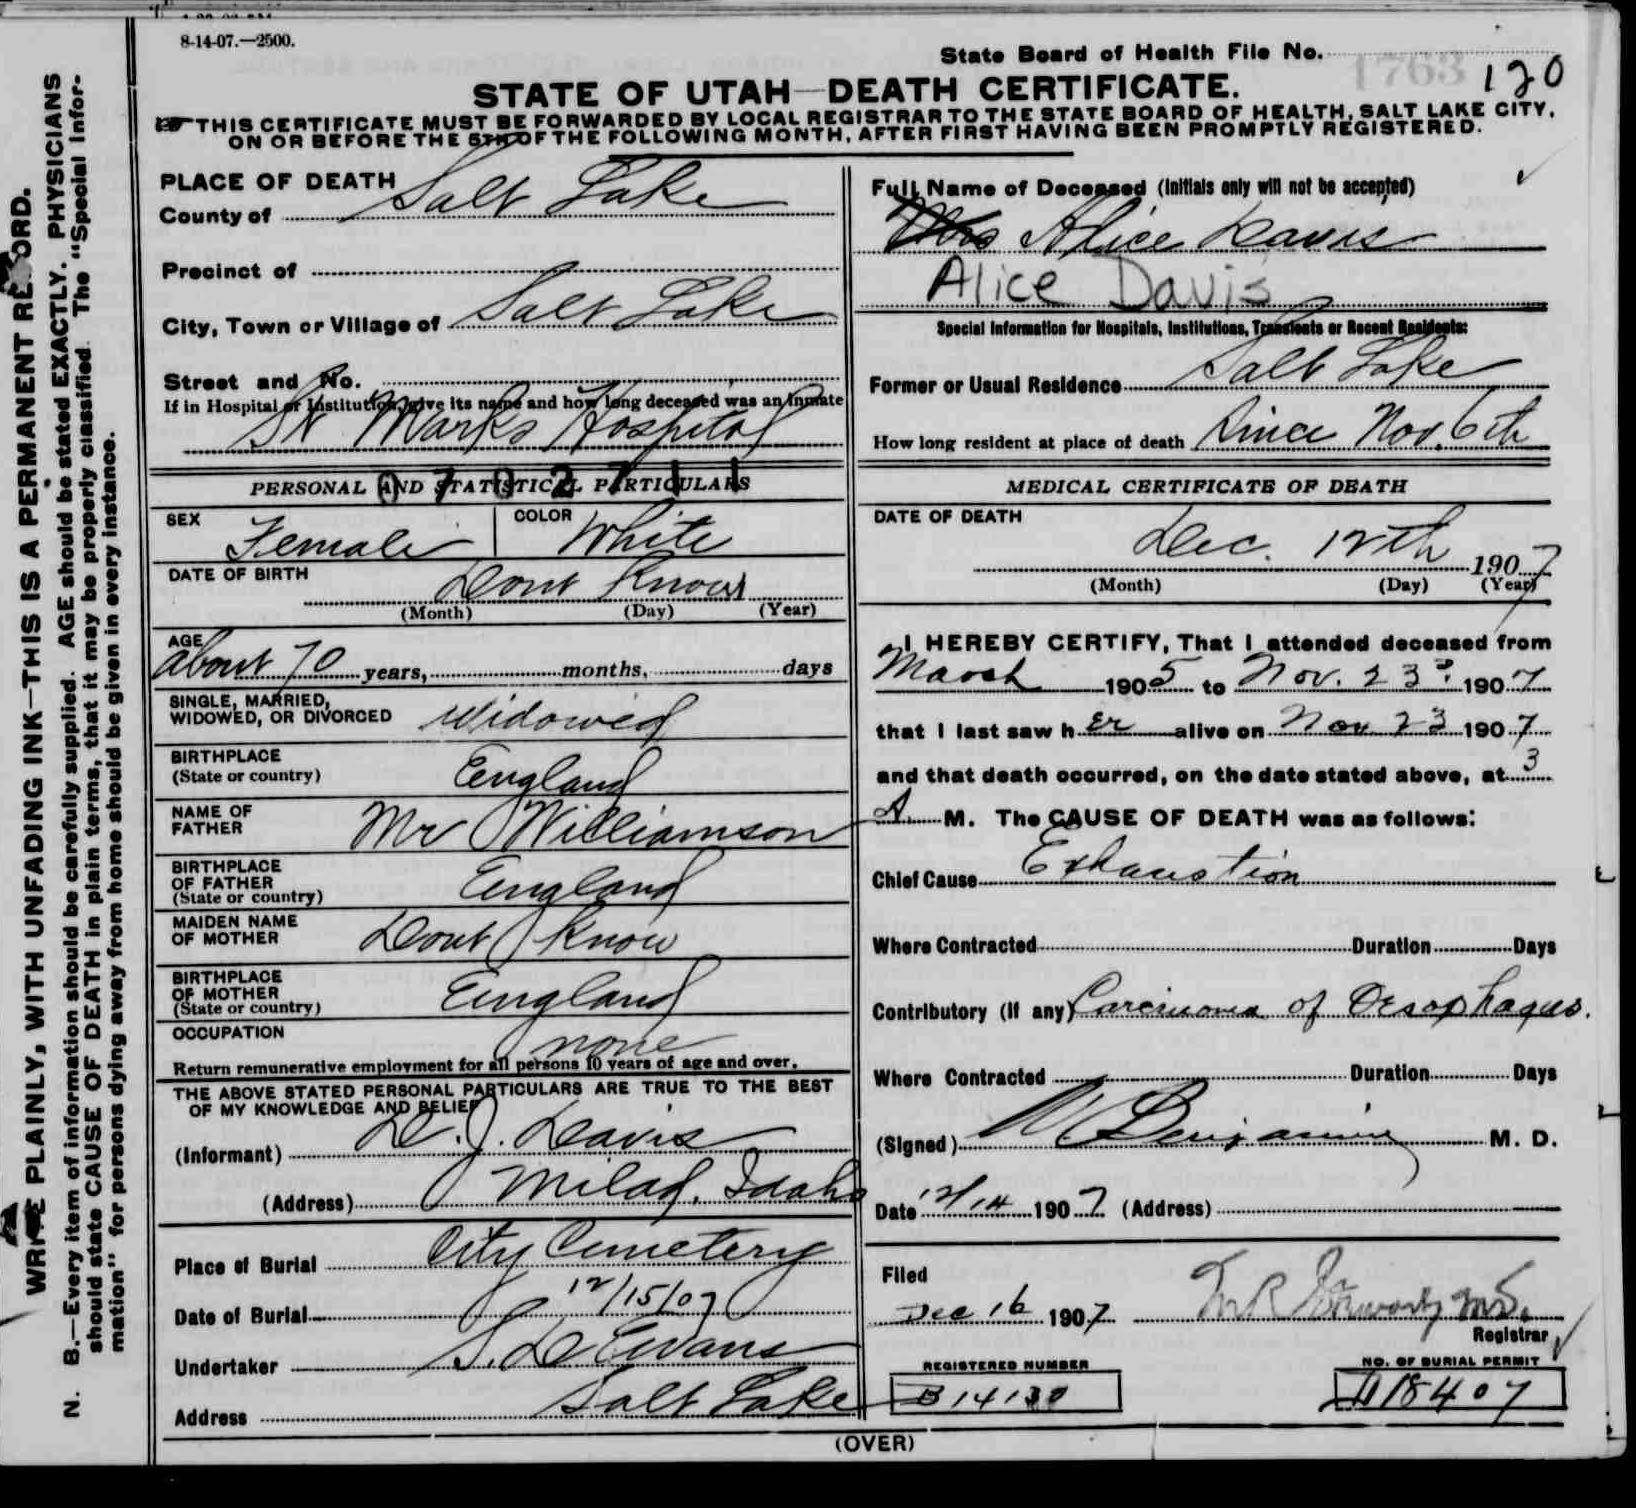 8-14-07.—2500.
State Board of Health File No. 1763 120
STATE OF UTAH—DEATH CERTIFICATE.
THIS CERTIFICATE MUST BE FORWARDED BY LOCAL REGISTRAR TO THE STATE BOARD OF HEALTH, SALT LAKE CITY,
ON OR BEFORE THE 5TH OF THE FOLLOWING MONTH, AFTER FIRST HAVING BEEN PROMPTLY REGISTERED.
WRITE PLAINLY, WITH UNFADING INK—THIS IS A PERMANENT RECORD.
N. B.—Every item of information should be carefully supplied. AGE should be stated EXACTLY. PHYSICIANS
should state CAUSE OF DEATH in plain terms, that it may be properly classified. The "Special Infor-
mation" for persons dying away from home should be given in every instance.
PLACE OF DEATH
County of Salt Lake
Precinct of
City, Town or Village of Salt Lake
Street and No.
If in Hospital or Institution, give its name and how long deceased was an Inmate
St Marks Hospital
PERSONAL AND STATISTICAL PARTICULARS
0702711
SEX Female COLOR White
DATE OF BIRTH Dont Know
(Month) (Day) (Year)
AGE
about 70 years, months, days
SINGLE, MARRIED,
WIDOWED, OR DIVORCED Widowed
BIRTHPLACE
(State or country) England
NAME OF
FATHER Mr Williamson
BIRTHPLACE
OF FATHER
(State or country) England
MAIDEN NAME
OF MOTHER Dont Know
BIRTHPLACE
OF MOTHER
(State or country) England
OCCUPATION none
Return remunerative employment for all persons 10 years of age and over.
THE ABOVE STATED PERSONAL PARTICULARS ARE TRUE TO THE BEST
OF MY KNOWLEDGE AND BELIEF
(Informant) D. J. Davis
(Address) Milad, Idaho
Place of Burial City Cemetery
Date of Burial 12/15/07
Undertaker S. D Evans
Address Salt Lake
Full Name of Deceased (Initials only will not be accepted)
Mrs Alice Davis
Alice Davis
Special Information for Hospitals, Institutions, Transients or Recent Residents:
Former or Usual Residence Salt Lake
How long resident at place of death Since Nov. 6th
MEDICAL CERTIFICATE OF DEATH
DATE OF DEATH
Dec. 12th 1907
(Month) (Day) (Year)
I HEREBY CERTIFY, That I attended deceased from
March 1905 to Nov. 23d. 1907
that I last saw her alive on Nov 23 1907
and that death occurred, on the date stated above, at 3
A. M. The CAUSE OF DEATH was as follows:
Chief Cause Exhaustion
Where Contracted Duration Days
Contributory (If any) Carcinoma of Oesophagus.
Where Contracted Duration Days
(Signed) Benjamin M. D.
Date 12/14 1907 (Address)
Filed
Dec 16 1907
Registrar
REGISTERED NUMBER
B 14130
NO. OF BURIAL PERMIT
A18407
(OVER)